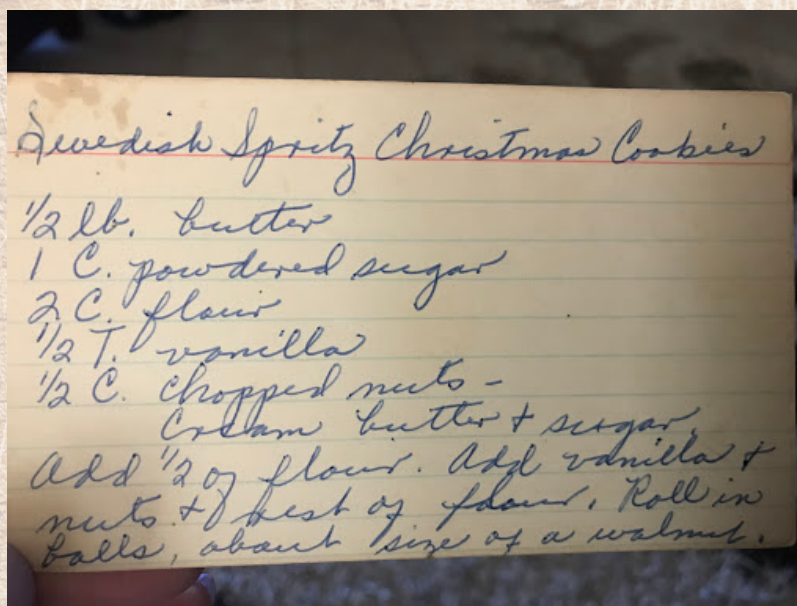 Swedish Spritz Christmas Cookies
1/2 lb. butter
1 C. powdered sugar
2 C. flour
1/2 T. vanilla
1/2 C. chopped nuts -
Cream butter & sugar.
Add 1/2 of flour. Add vanilla &
nuts & rest of flour. Roll in
balls, about size of a walnut.